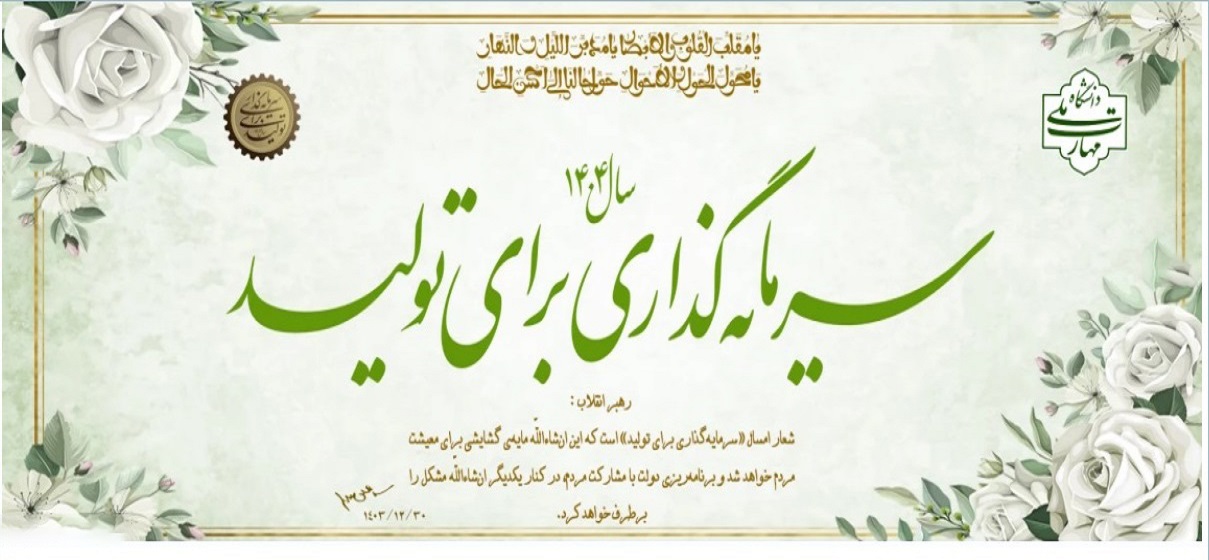 یا مقلب القلوب و الابصار یا مدبر اللیل و النهار
یا محول الحول و الاحوال حول حالنا الی احسن الحال
سرمایه گذاری برای تولید
دانشگاه
ملی
مهارت
سال ۱۴۰۴
سرمایه گذاری برای تولید
رهبر انقلاب :
شعار امسال «سرمایه‌گذاری برای تولید» است که این ان‌شاءاللّه مایه‌ی گشایشی برای معیشت
مردم خواهد شد و برنامه‌ریزی دولت با مشارکت مردم در کنار یکدیگر ان‌شاءاللّه مشکل را
برطرف خواهد کرد.
۱۴۰۳/۱۲/۳۰